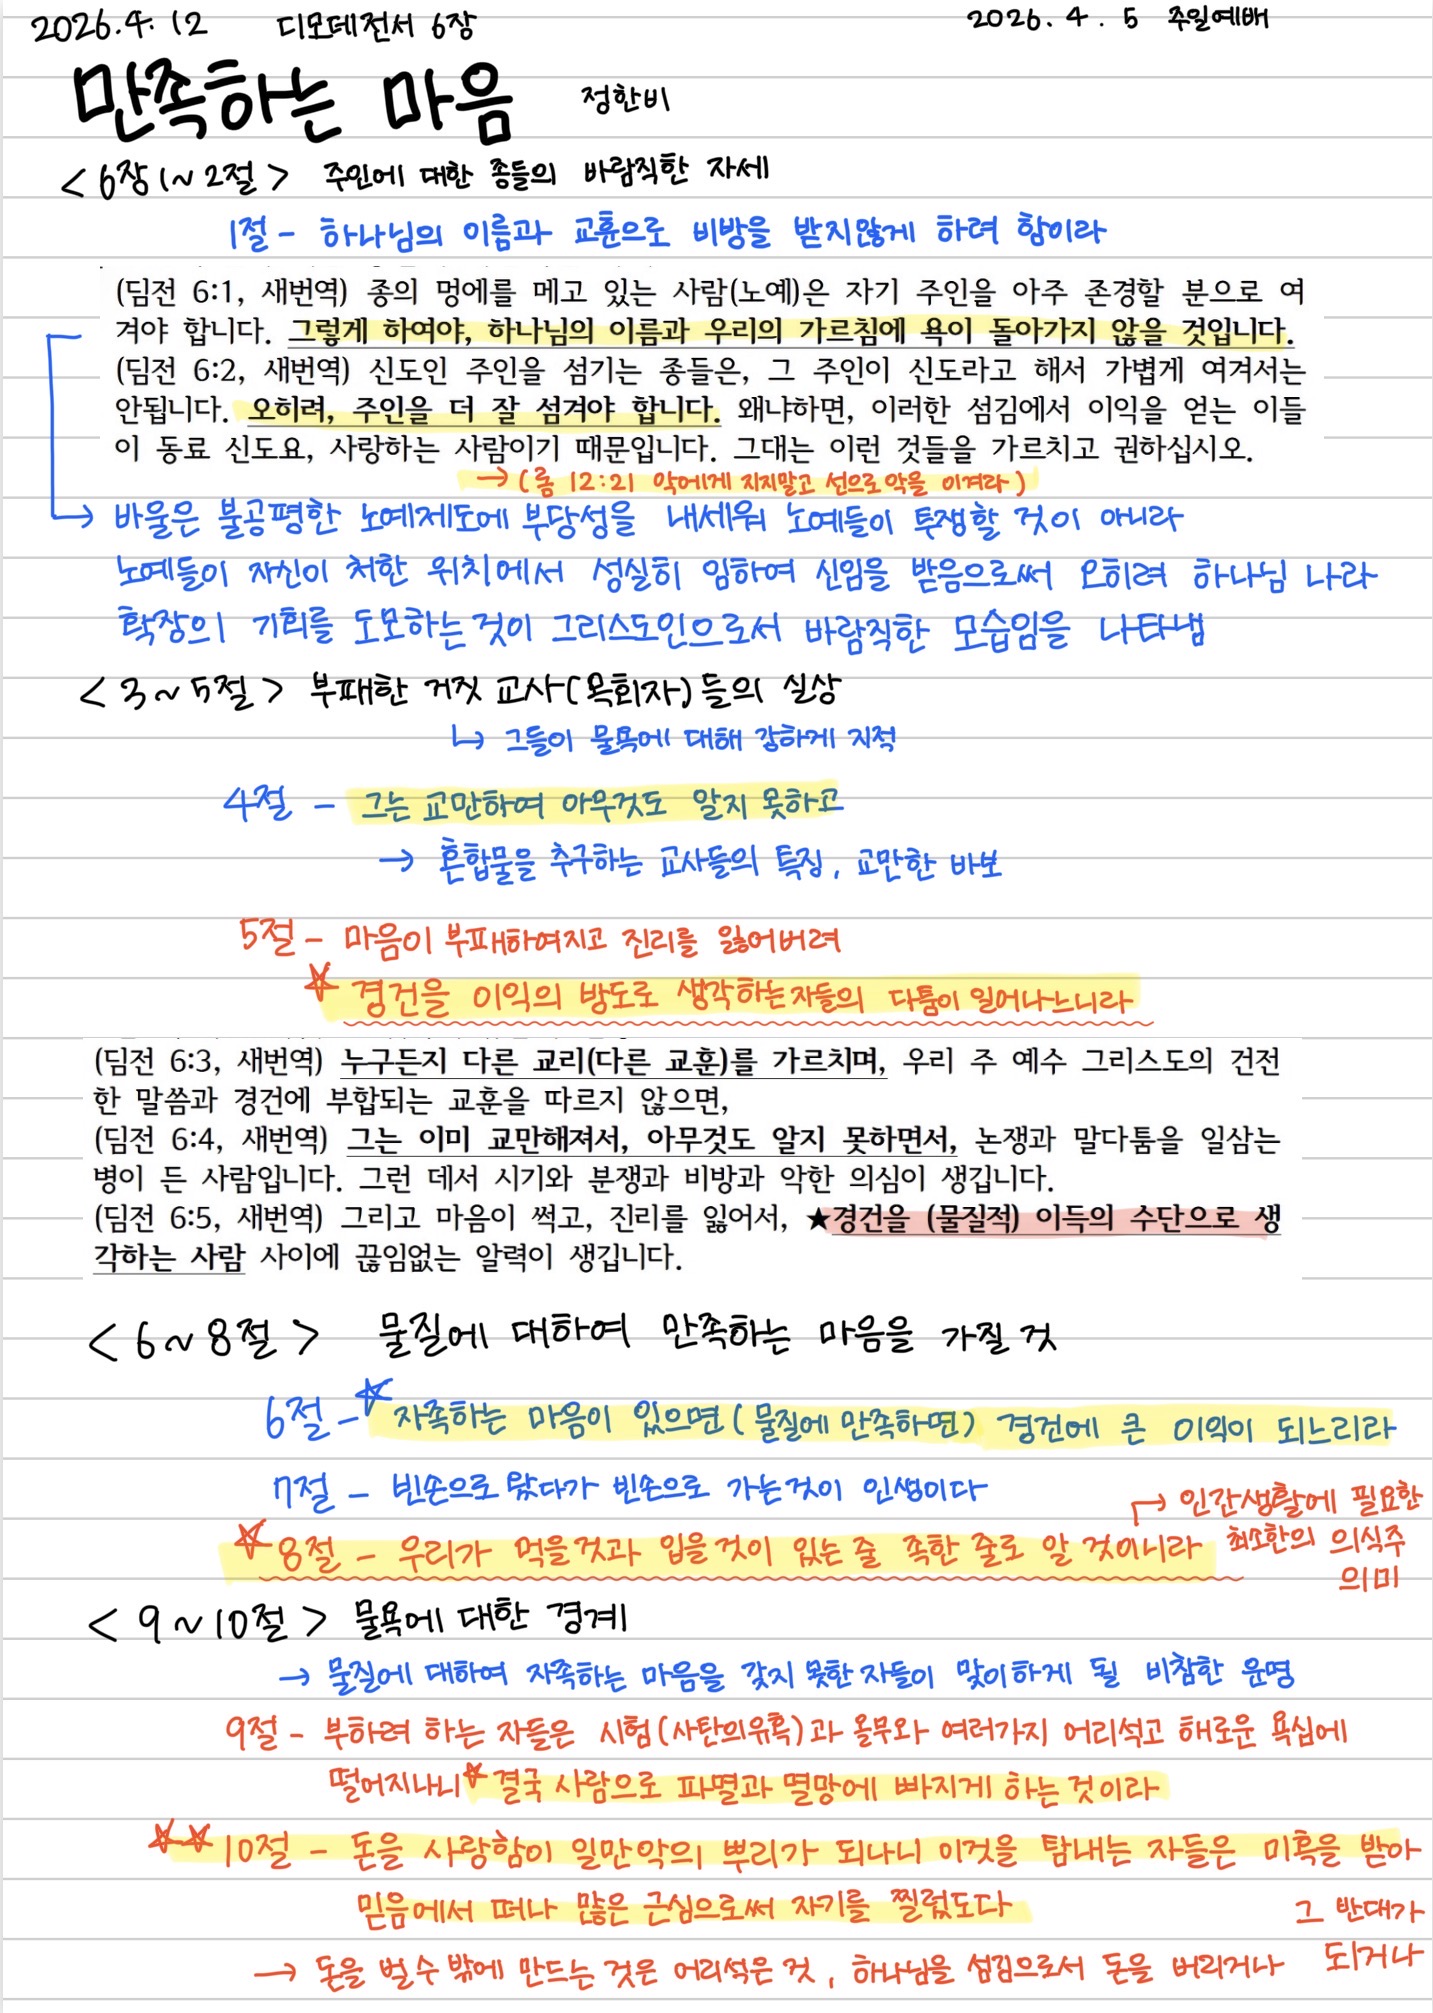 2026.4.12 디모데전서 6장
2026.4.5 주일예배
만족하는 마음 정한비
<6장 1~2절> 주인에 대한 종들의 바람직한 자세
1절 - 하나님의 이름과 교훈으로 비방을 받지않게 하려 함이라
(딤전 6:1, 새번역) 종의 멍에를 메고 있는 사람(노예)은 자기 주인을 아주 존경할 분으로 여
겨야 합니다. 그렇게 하여야, 하나님의 이름과 우리의 가르침에 욕이 돌아가지 않을 것입니다.
(딤전 6:2, 새번역) 신도인 주인을 섬기는 종들은, 그 주인이 신도라고 해서 가볍게 여겨서는
안됩니다. 오히려, 주인을 더 잘 섬겨야 합니다. 왜냐하면, 이러한 섬김에서 이익을 얻는 이들
이 동료 신도요, 사랑하는 사람이기 때문입니다. 그대는 이런 것들을 가르치고 권하십시오.
→ (롬 12:21 악에게 지지말고 선으로 악을 이겨라)
→ 바울은 불공평한 노예제도에 부당성을 내세워 노예들이 투쟁할 것이 아니라
노예들이 자신이 처한 위치에서 성실히 임하여 신임을 받음으로써 오히려 하나님 나라
확장의 기회를 도모하는 것이 그리스도인으로서 바람직한 모습임을 나타냄
<3~5절> 부패한 거짓 교사(목회자)들의 실상
↳ 그들이 물욕에 대해 강하게 지적
4절 - 그는 교만하여 아무것도 알지 못하고
→ 혼합물을 추구하는 교사들의 특징, 교만한 바보
5절 - 마음이 부패하여지고 진리를 잃어버려
☆ 경건을 이익의 방도로 생각하는자들의 다툼이 일어나느니라
(딤전 6:3, 새번역) 누구든지 다른 교리(다른 교훈)를 가르치며, 우리 주 예수 그리스도의 건전
한 말씀과 경건에 부합되는 교훈을 따르지 않으면,
(딤전 6:4, 새번역) 그는 이미 교만해져서, 아무것도 알지 못하면서, 논쟁과 말다툼을 일삼는
병이 든 사람입니다. 그런 데서 시기와 분쟁과 비방과 악한 의심이 생깁니다.
(딤전 6:5, 새번역) 그리고 마음이 썩고, 진리를 잃어서, ★경건을 (물질적) 이득의 수단으로 생
각하는 사람 사이에 끊임없는 알력이 생깁니다.
<6~8절> 물질에 대하여 만족하는 마음을 가질 것
6절 - ☆ 자족하는 마음이 있으면(물질에 만족하면) 경건에 큰 이익이 되느리라
7절 - 빈손으로 왔다가 빈손으로 가는것이 인생이다
☆ 8절 - 우리가 먹을것과 입을것이 있는 줄 족한 줄로 알 것이니라
→ 인간생활에 필요한
최소한의 의식주
의미
<9~10절> 물욕에 대한 경계
→ 물질에 대하여 자족하는 마음을 갖지 못한 자들이 맞이하게 될 비참한 운명
9절 - 부하려 하는 자들은 시험(사탄의유혹)과 올무와 여러가지 어리석고 해로운 욕심에
떨어지나니 ☆ 결국 사람으로 파멸과 멸망에 빠지게 하는 것이라
☆☆ 10절 - 돈을 사랑함이 일만악의 뿌리가 되나니 이것을 탐내는 자들은 미혹을 받아
믿음에서 떠나 많은 근심으로써 자기를 찔렀도다
→ 돈을 벌수 밖에 만드는 것은 어리석은 것, 하나님을 섬김으로서 돈을 버리거나
그 반대가
되거나